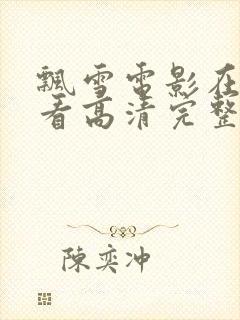 飄雪電影在
看高清完整
陳奕沖